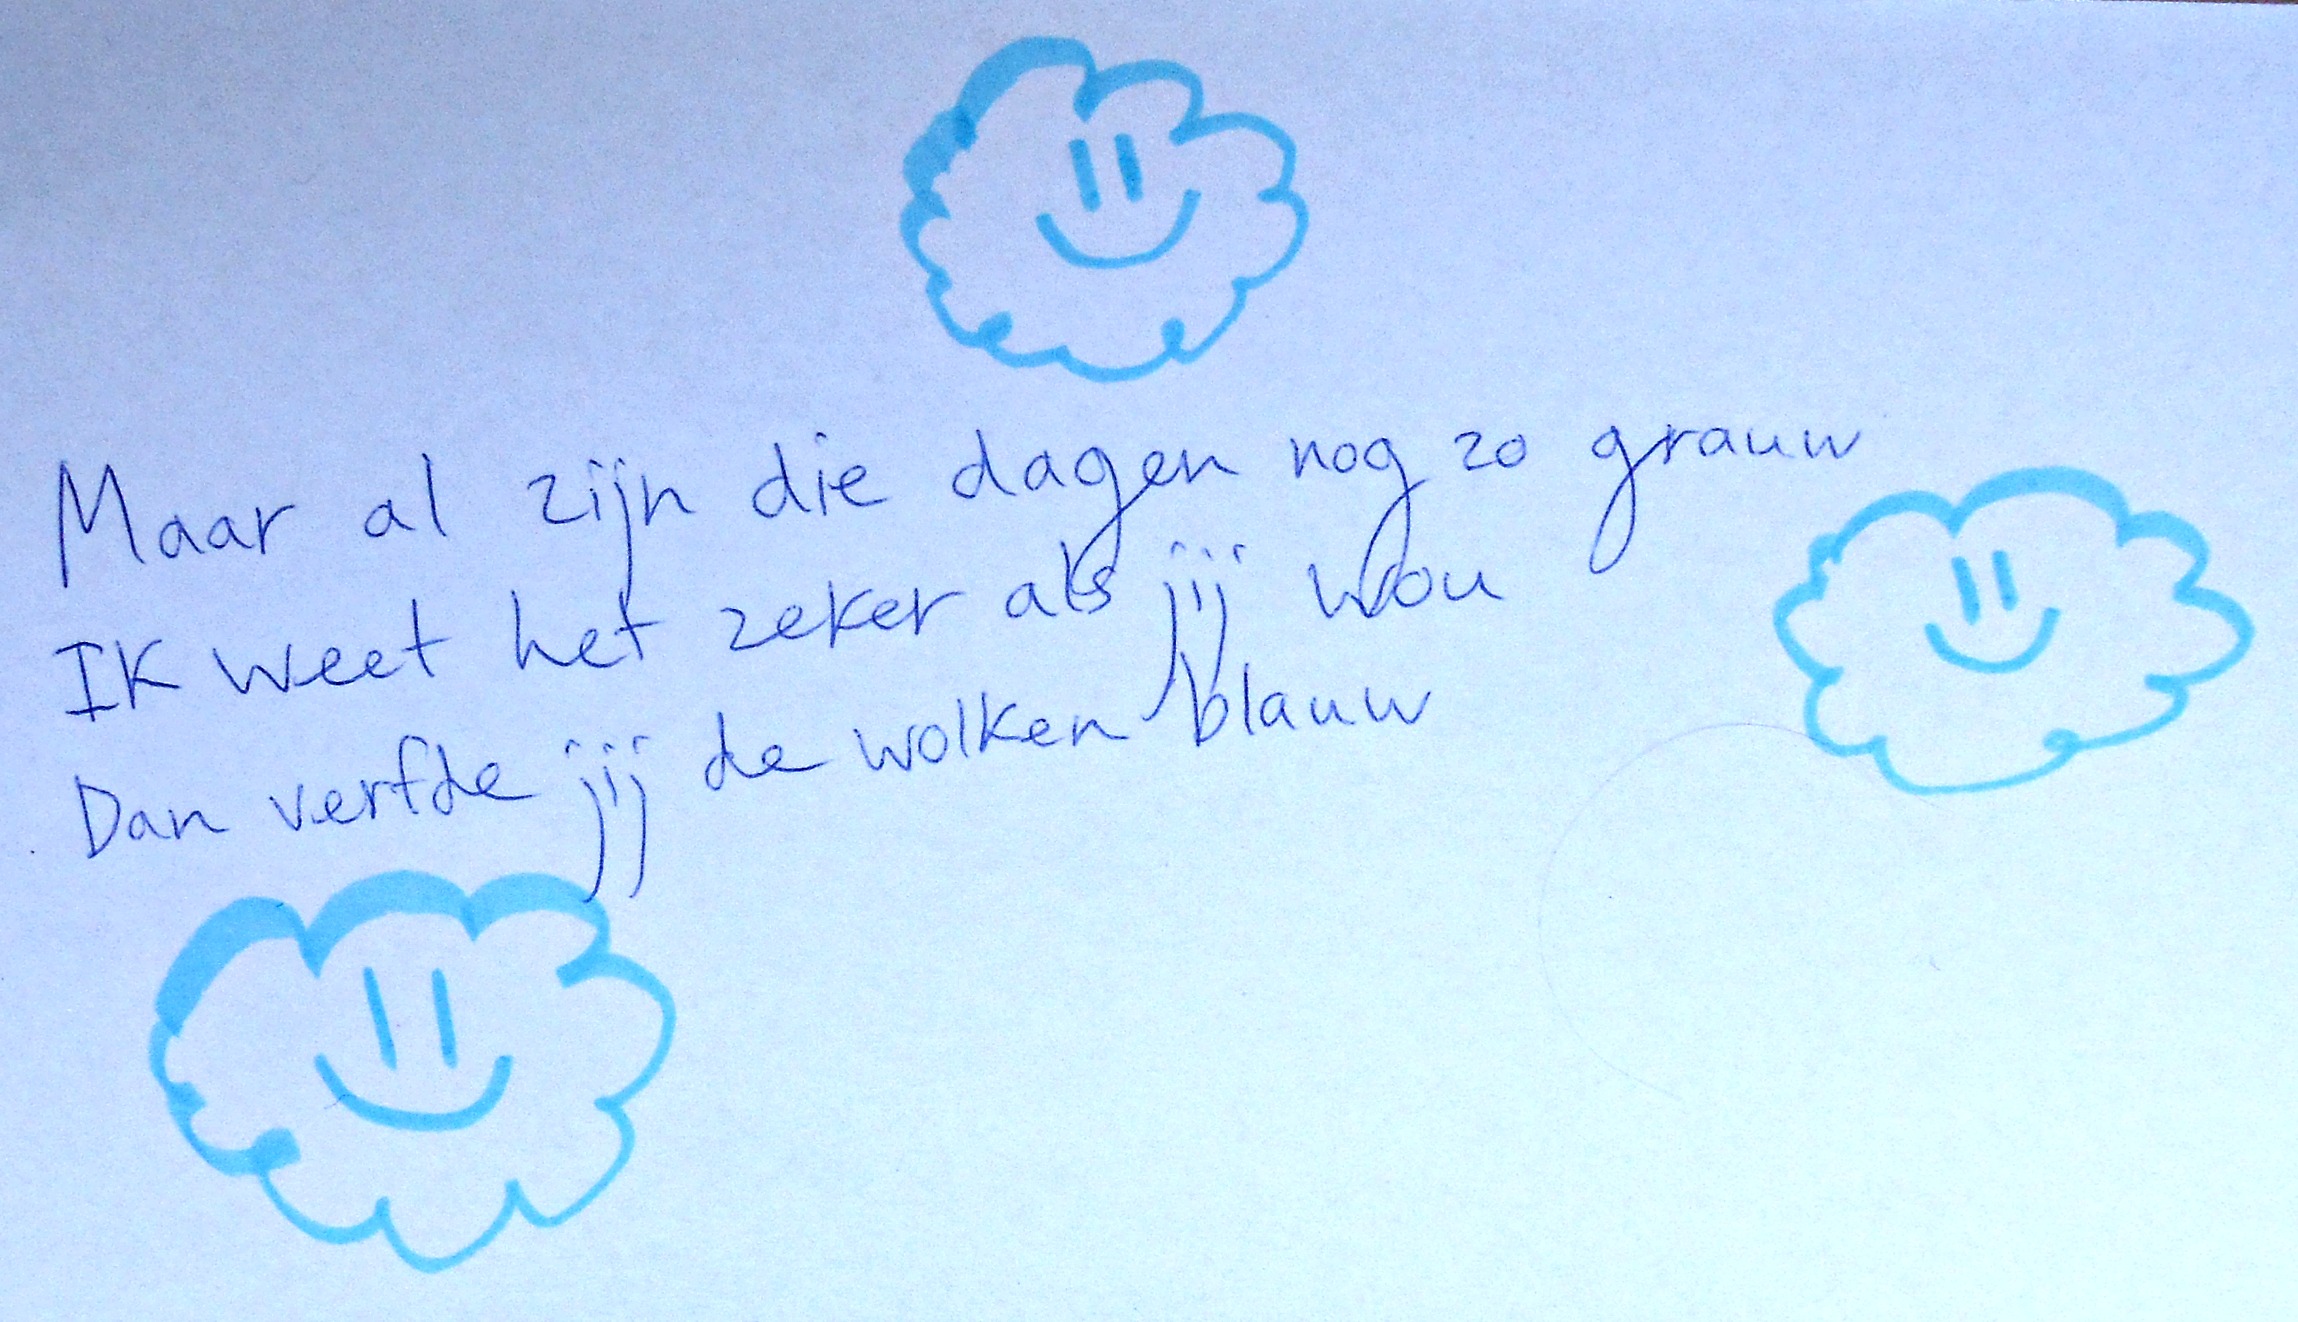 Maar al zijn die dagen nog zo grauw
Ik weet het zeker als jij wou
Dan verfde jij de wolken blauw